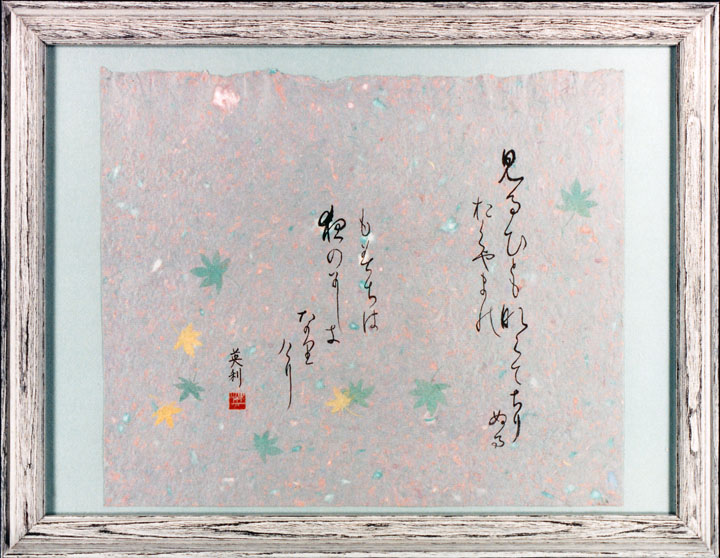 見るひともなくてちりぬる
おくやまの
もみちは
夜のにしき
なりけり
英利